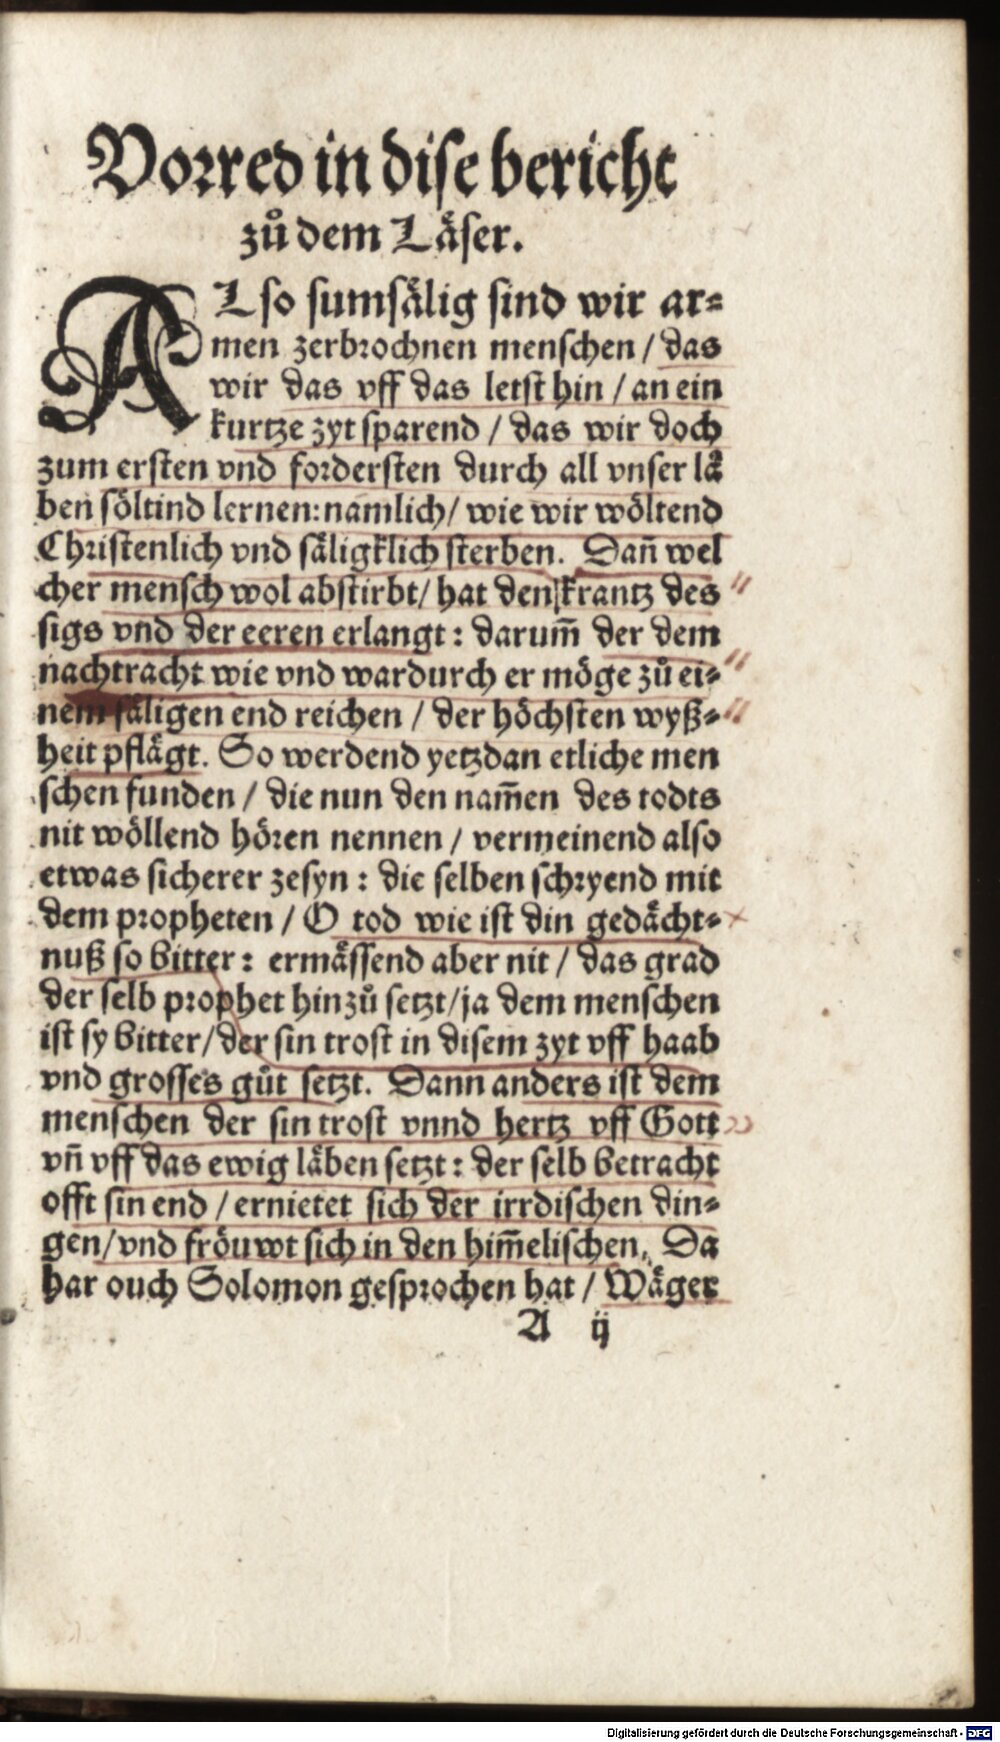 Vorred in dise bericht
zů dem Läser.
ALso sumsälig sind wir ar⸗
men zerbrochnen menschen / das
wir das vff das letst hin / an ein
kurtze zyt sparend / das wir doch
zum ersten vnd fordersten durch all vnser lä
ben söltind lernen: namlich / wie wir wöltend
Christenlich vnd säligklich sterben. Dañ wel
cher mensch wol abstirbt / hat den krantz des
sigs vnd der eeren erlangt : darum̃ der dem
nachtracht wie vnd wardurch er möge zů ei⸗
nem säligen end reichen / der höchsten wyß⸗
heit pflägt. So werdend yetzdan etliche men
schen funden / die nun den nam̃en des todts
nit wöllend hören nennen / vermeinend also
etwas sicherer zesyn : die selben schryend mit
dem propheten / O tod wie ist din gedächt⸗
nuß so bitter : ermässend aber nit / das grad
der selb prophet hinzů setzt / ja dem menschen
ist sy bitter / der sin trost in disem zyt vff haab
vnd grosses gůt setzt. Dann anders ist dem
menschen der sin trost vnnd hertz vff Gott
vñ vff das ewig läben setzt : der selb betracht
offt sin end / ernietet sich der irrdischen din⸗
gen / vnd fröuwt sich in den him̃elischen. Da
har ouch Solomon gesprochen hat / Wäger
A ij
Digitalisierung gefördert durch die Deutsche Forschungsgemeinschaft - DFG